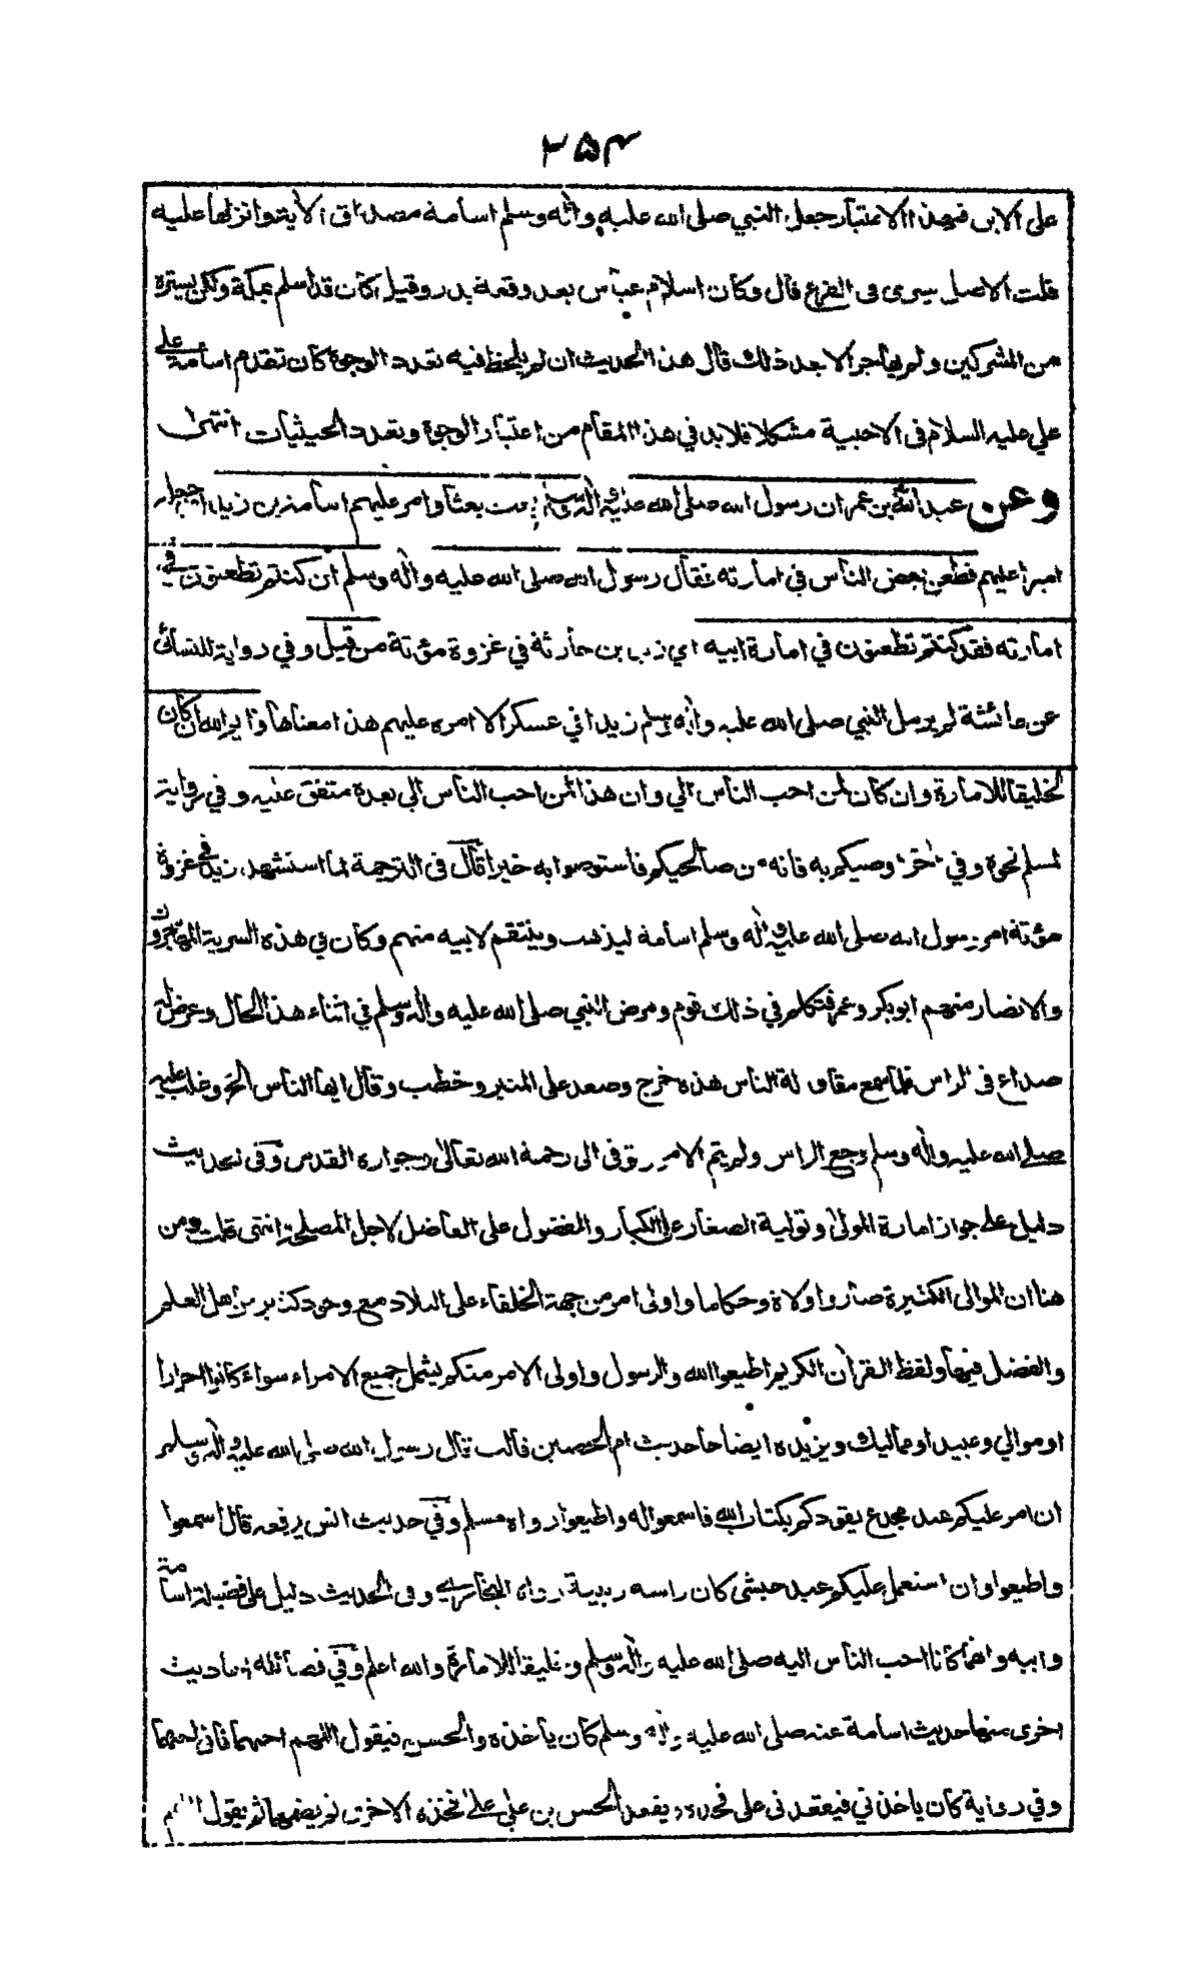 ۲۵۴
على الابن فبهذا الاعتبار جعل النبي صلى الله عليه واله وسلم اسامة مصداق الاية وانزلها عليه
قلت الاصل يسرى فى الفرع قال وكان اسلام عباس بعد وقعة بدر وقيل كان قد اسلم بمكة ولكن يستره
من المشركين ولم يهاجر الا بعد ذلك قال هذا الحديث ان لم يلحظ فيه تعدد الوجوه كان تقدم اسامة على
علي عليه السلام فى الاحبية مشكلا فلا بد في هذا المقام من اعتبار الوجوه وتعدد الحيثيات انتهى
وعن عبد الله بن عمر ان رسول الله صلى الله عليه واله وسلم بعث بعثا وامر عليهم اسامة بن زيد اي جعله
اميرا عليهم فطعن بعض الناس في امارته فقال رسول الله صلى الله عليه واله وسلم ان كنتم تطعنون في
امارته فقد كنتم تطعنون في امارة ابيه اي زيد بن حارثة في غزوة مؤتة من قبل وفي رواية للنسائى
عن عائشة لم يرسل النبي صلى الله عليه واله وسلم زيدا في عسكر الا امره عليهم هذا معناها وايم الله ان كان
لخليقا للامارة وان كان لمن احب الناس الي وان هذا لمن احب الناس الي بعده متفق عليه وفي رواية
لمسلم نحوه وفي اخره اوصيكم به فانه من صالحيكم فاستوصوا به خيرا قال فى الترجمة لما استشهد زيد في غزوة
مؤتة امر رسول الله صلى الله عليه واله وسلم اسامة ليذهب وينتقم لابيه منهم وكان في هذه السرية المهاجرون
والانصار منهم ابو بكر وعمر فتكلم في ذلك قوم ومرض النبي صلى الله عليه واله وسلم في اثناء هذا الحال وعرض له
صداع فى الراس فلما سمع مقاولة الناس هذه خرج وصعد على المنبر وخطب وقال ايها الناس الخ وغلب عليه
صلى الله عليه واله وسلم وجع الراس ولم يتم الامر وتوفى الى رحمة الله تعالى وجواره القدس وفى الحديث
دليل على جواز امارة المولى وتولية الصغار على الكبار والمفضول على الفاضل لاجل المصلحة انتهى قلت ومن
هنا ان الموالى الكثيرة صاروا ولاة وحكاما واولى امر من جهة الخلفاء على البلاد مع وجود كثير من اهل العلم
والفضل فيها ولفظ القران الكريم اطيعوا الله والرسول واولى الامر منكم يشمل جميع الامراء سواء كانوا احرارا
او موالي وعبيدا ومماليك ويزيده ايضاحا حديث ام الحصين قالت قال رسول الله صلى الله عليه واله وسلم
ان امر عليكم عبد مجدع يقودكم بكتاب الله فاسمعوا له واطيعوا رواه مسلم وفي حديث انس يرفعه قال اسمعوا
واطيعوا وان استعمل عليكم عبد حبشى كان راسه زبيبة رواه البخاري وفى الحديث دليل على فضيلة اسامة
وابيه وانهما كانا احب الناس اليه صلى الله عليه واله وسلم وخليقا للامارة والله اعلم وفي فضائله احاديث
اخرى منها حديث اسامة عنه صلى الله عليه واله وسلم كان ياخذه والحسن فيقول اللهم احبهما فانى احبهما
وفي رواية كان ياخذني فيقعدنى على فخذه ويقعد الحسن بن علي على فخذه الاخرى ثم يضمهما ثم يقول اللهم